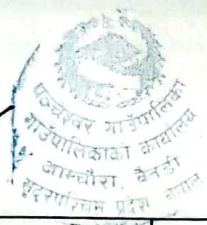 पञ्चेश्वर गाउँपालिका
गाउँपालिकाको कार्यालय
आमचौरा, बैतडी
सुदूरपश्चिम प्रदेश नेपाल